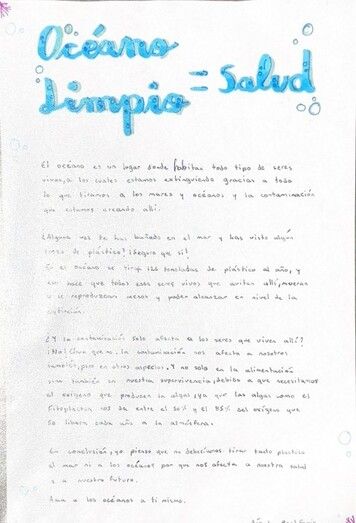 Océano
Limpio = Salud
El océano es un lugar donde habitan todo tipo de seres
vivos, a los cuales estamos extinguiendo gracias a todo
lo que tiramos a los mares y océanos y la contaminación
que estamos creando allí.
¿Alguna vez te has bañado en el mar y has visto algún
trozo de plástico? ¡Seguro que si!
En el océano se tiran toneladas de plástico al año, y
eso hace que todos esos seres vivos que avitan allí, mueran
o se reproduzcan menos y poder alcanzar en nivel de la
extinción.
¿Y la contaminación solo afecta a los seres que viven allí?
¡No! Claro que no. la contaminación nos afecta a nosotros
también, pero en otros aspectos. Y no solo en la alimentación
sino también en nuestra supervivencia, debido a que necesitamos
el oxígeno que producen la algas, ya que las algas como el
fitoplacton nos da entre el 50% y el 85% del oxígeno que
se libera cada año a la atmósfera.
En conclusión, yo pienso que no deberíamos tirar tanto plastico
al mar ni a los océanos por que nos afecta a nuestra salud
y a nuestro futuro.
Ama a los océanos a ti mismo.